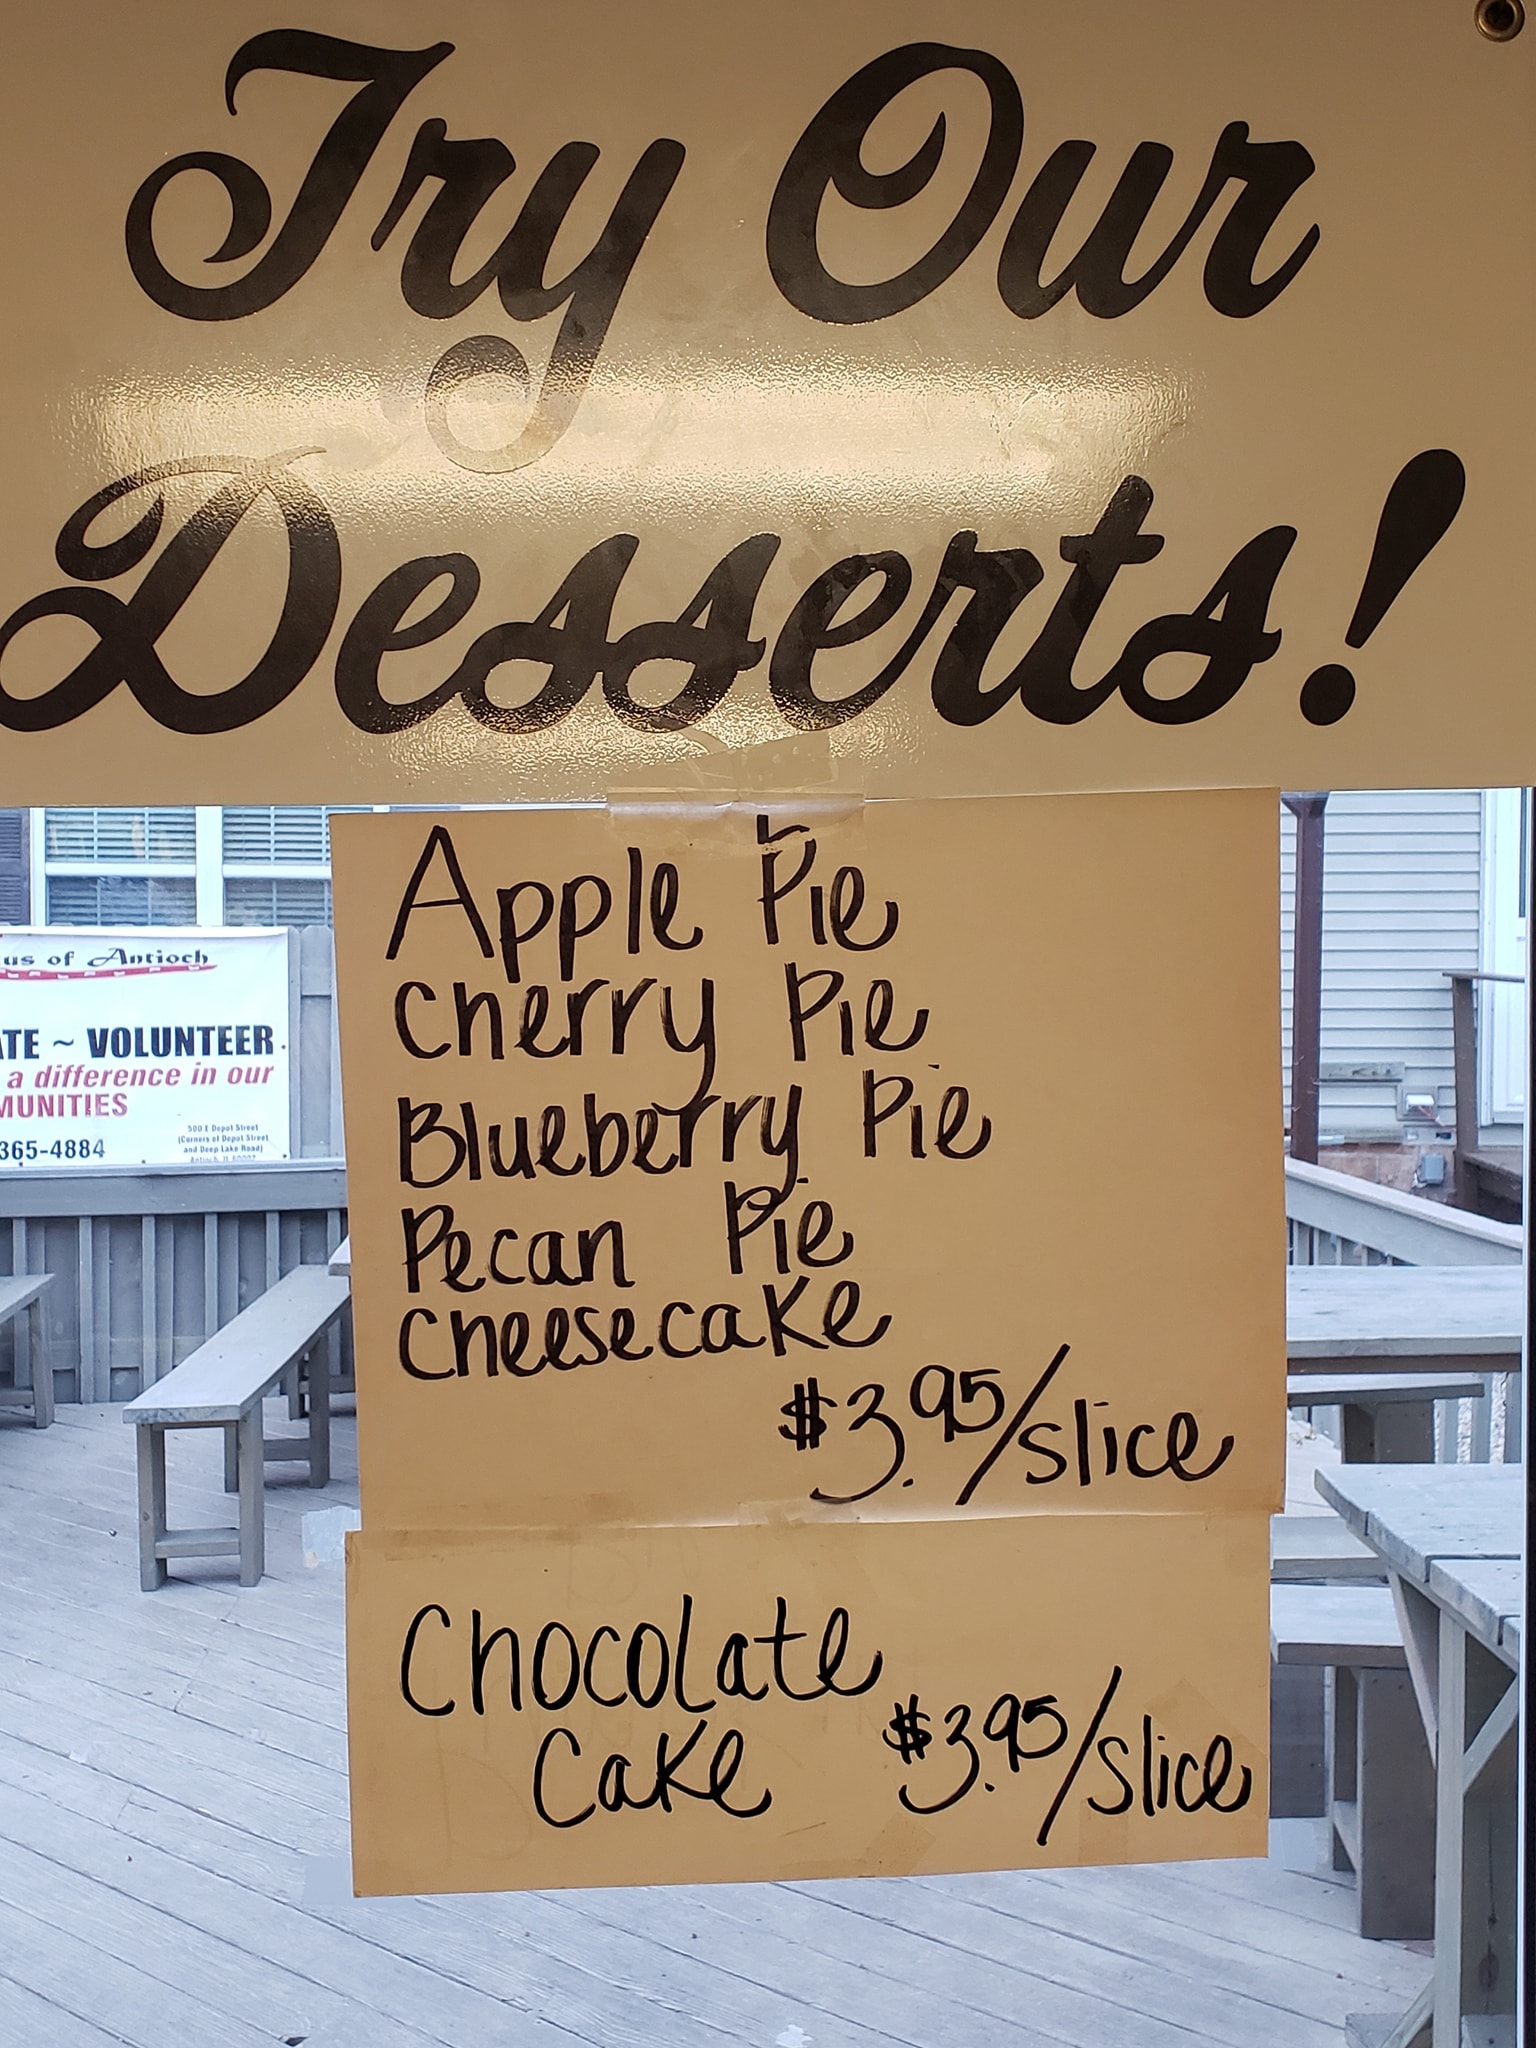 Try Our
Desserts!
Apple Pie
Cherry Pie
Blueberry Pie
Pecan Pie
Cheesecake
$3.95/slice
Chocolate
Cake $3.95/slice
us of Antioch
ATE ~ VOLUNTEER
a difference in our
MUNITIES
365-4884
500 E Depot Street
(Corners of Depot Street
and Deep Lake Road)
Antioch, IL